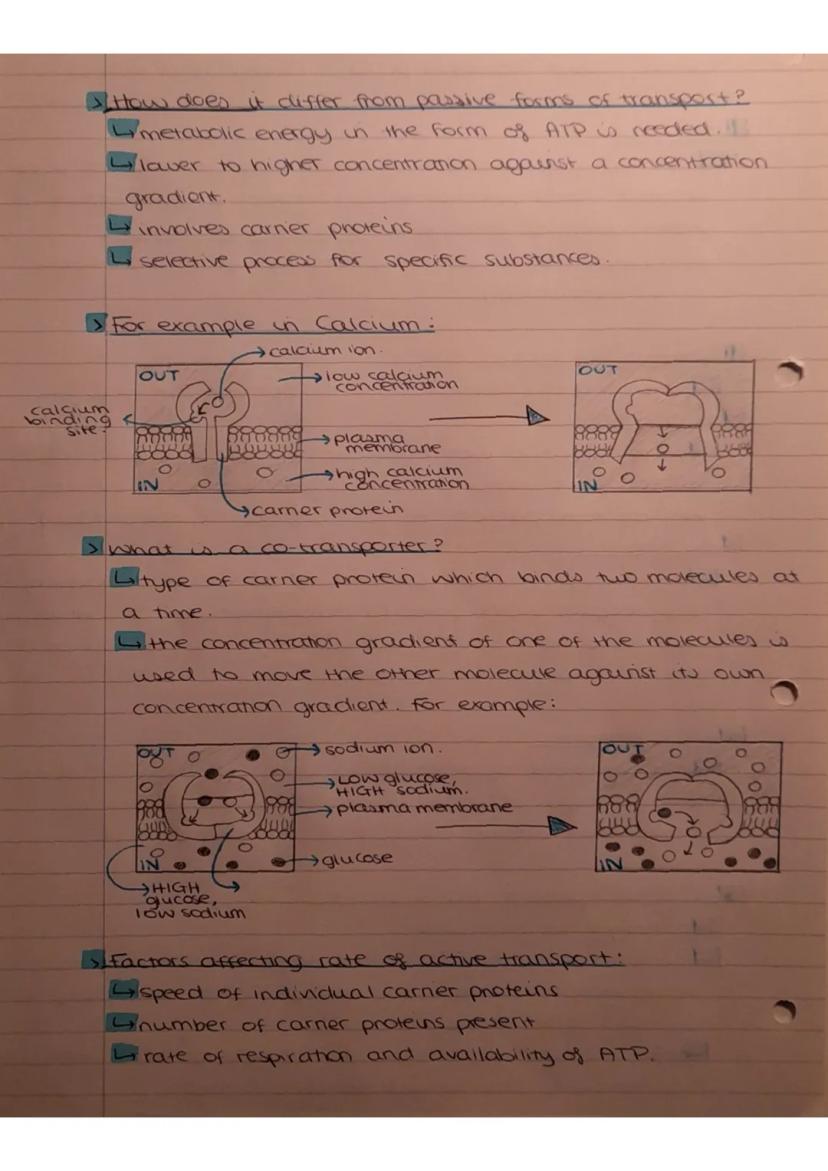 How does it differ from passive forms of transport?
metabolic energy in the form of ATP is needed.
lower to higher concentration against a concentration
gradient.
involves carrier proteins
selective process for specific substances.
For example in Calcium:
calcium ion.
OUT
low calcium
concentration
calcium
binding
site.
plasma
membrane
high calcium
concentration
IN
carrier protein
OUT
IN
What is a co-transporter?
type of carrier protein which binds two molecules at
a time.
the concentration gradient of one of the molecules is
used to move the other molecule against its own
concentration gradient. For example:
OUT
sodium ion.
LOW glucose,
HIGH sodium.
plasma membrane
IN
glucose
HIGH
glucose,
low sodium
OUT
IN
Factors affecting rate of active transport:
speed of individual carrier proteins
number of carrier proteins present
rate of respiration and availability of ATP.